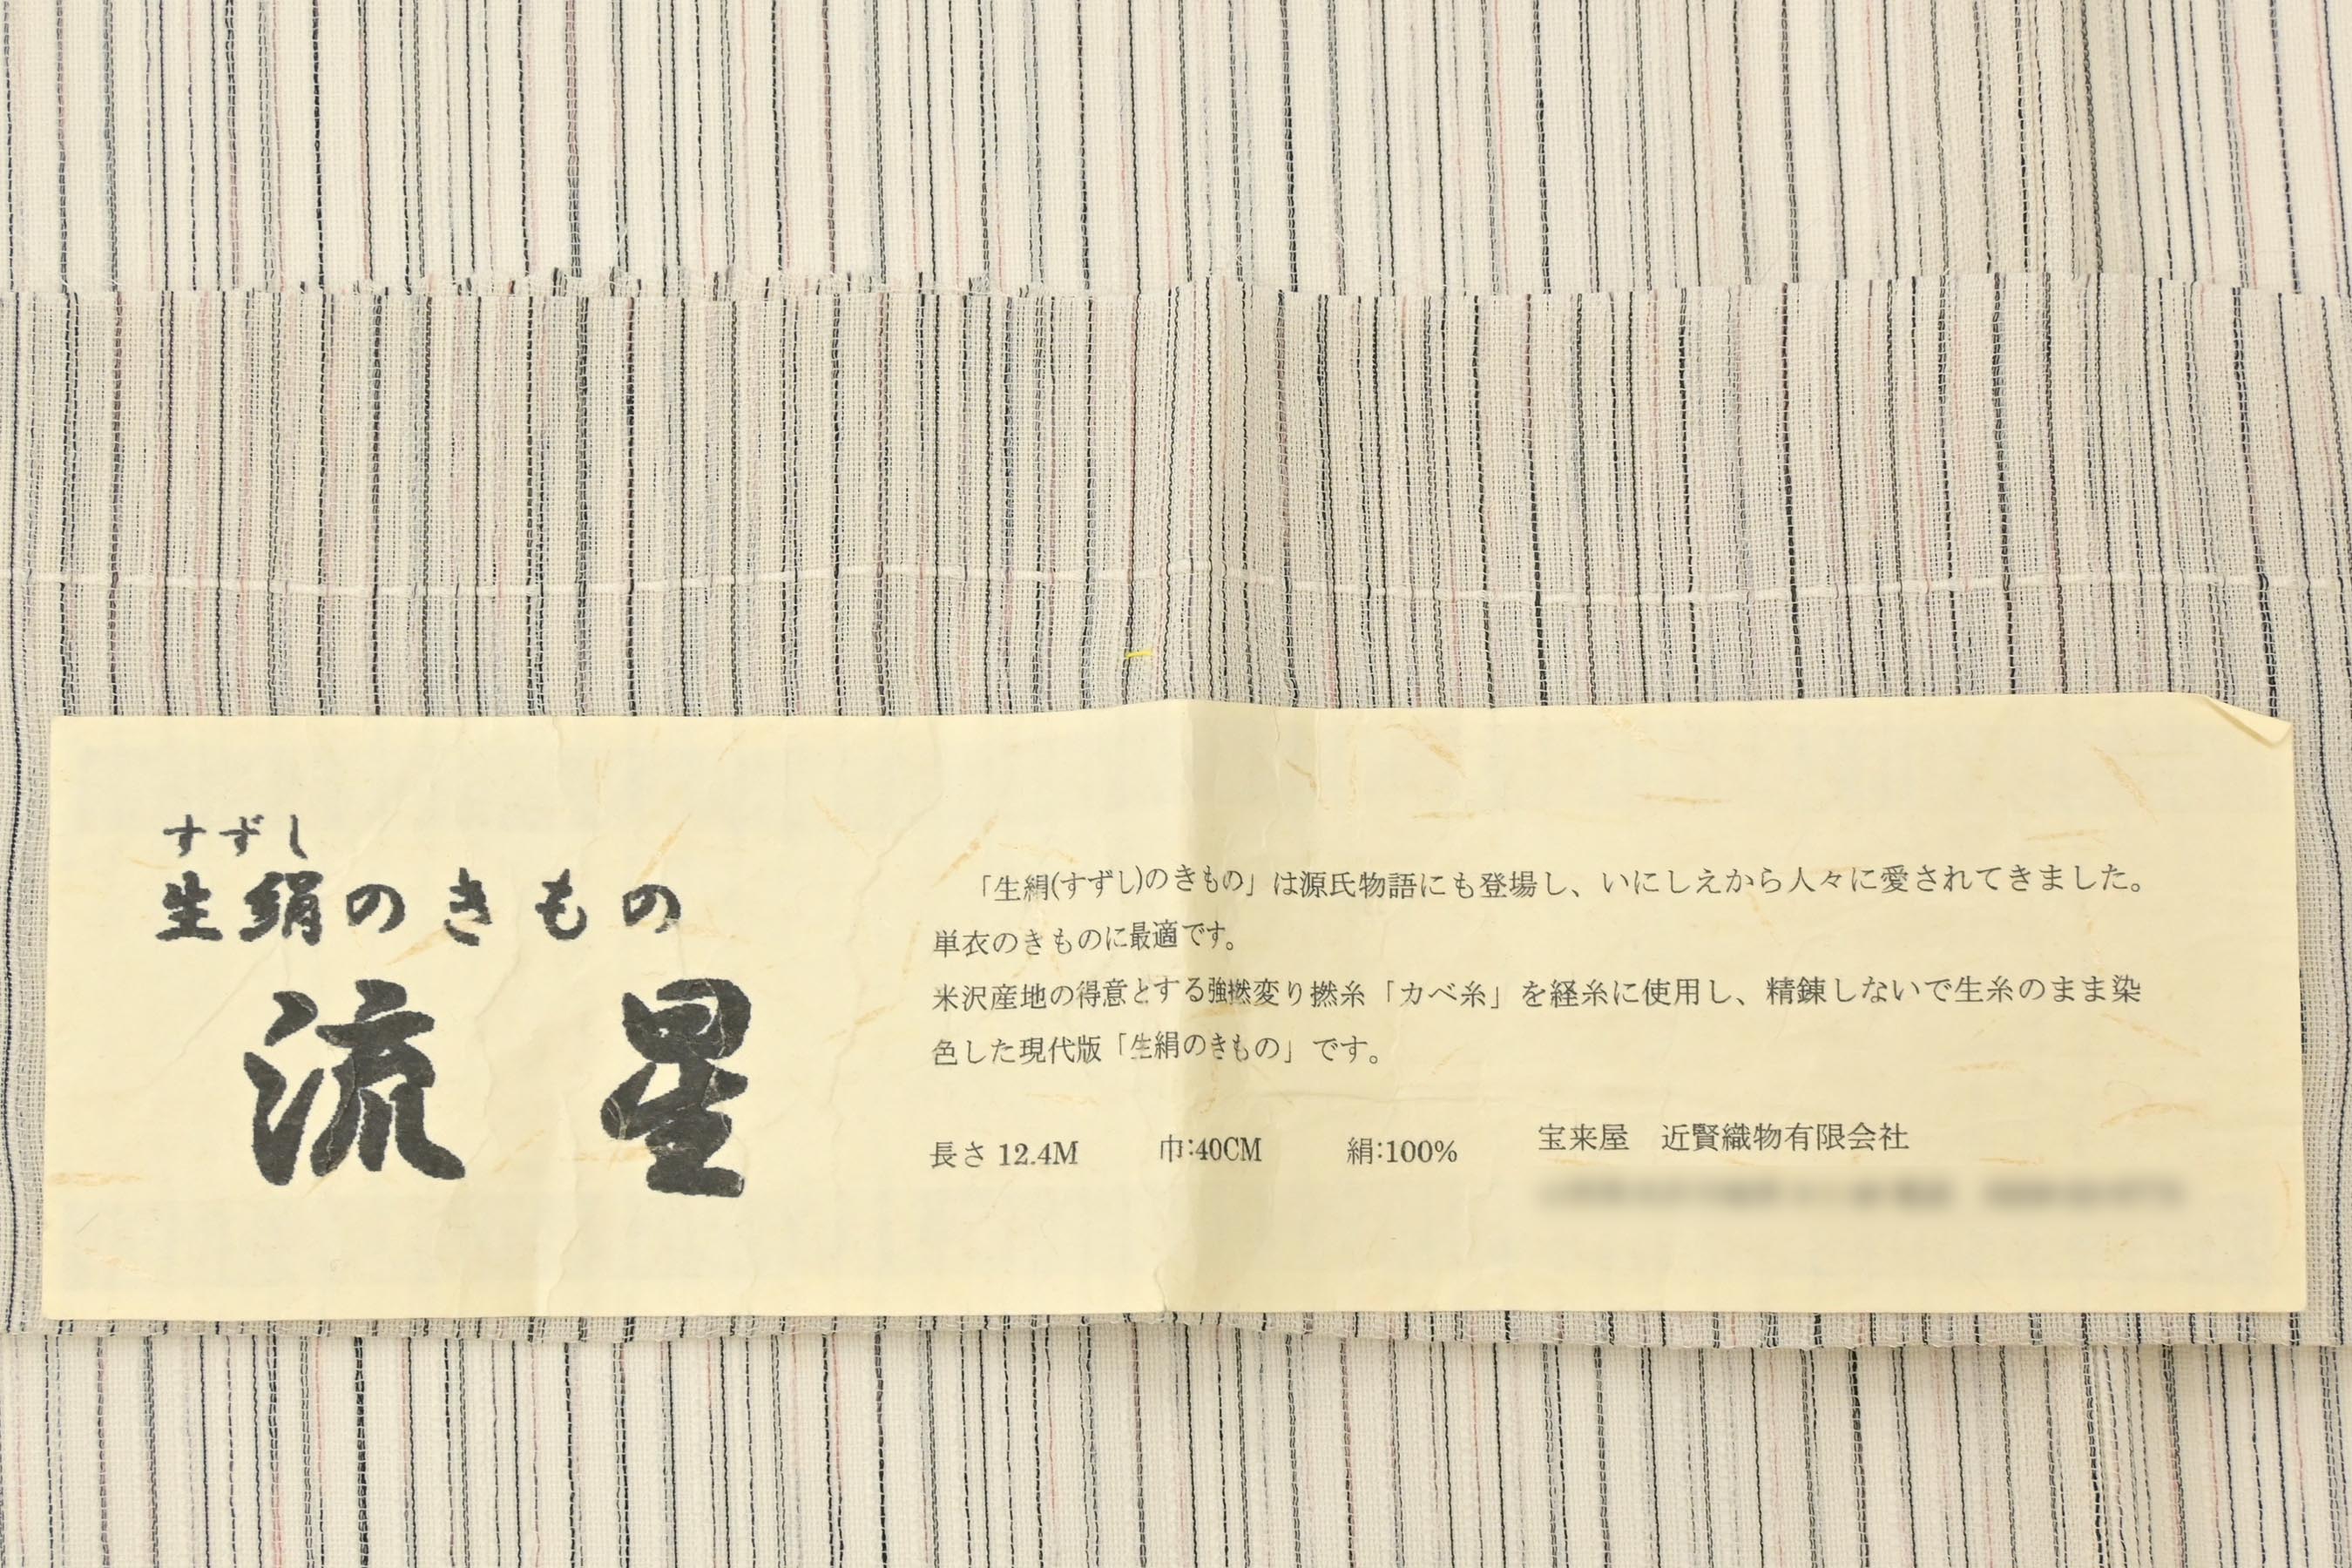 すずし
生絹のきもの
流星
「生絹(すずし)のきもの」は源氏物語にも登場し、いにしえから人々に愛されてきました。
単衣のきものに最適です。
米沢産地の得意とする強撚変り撚糸「カベ糸」を経糸に使用し、精錬しないで生糸のまま染
色した現代版「生絹のきもの」です。
長さ 12.4M 巾:40CM 絹:100% 宝来屋 近賢織物有限会社